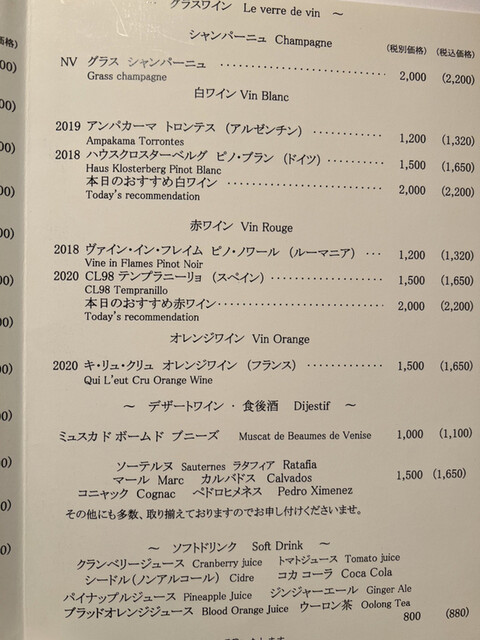 ～ グラスワイン Le verre de vin ～
シャンパーニュ Champagne
(税別価格) (税込価格)
NV グラス シャンパーニュ ································ 2,000 (2,200)
Grass champagne
白ワイン Vin Blanc
2019 アンパカーマ トロンテス (アルゼンチン) ············ 1,200 (1,320)
Ampakama Torrontes
2018 ハウスクロスターベルグ ピノ・ブラン (ドイツ) ·········· 1,500 (1,650)
Haus Klosterberg Pinot Blanc
本日のおすすめ白ワイン ······························ 2,000 (2,200)
Today's recommendation
赤ワイン Vin Rouge
2018 ヴァイン・イン・フレイム ピノ・ノワール (ルーマニア) ··· 1,200 (1,320)
Vine in Flames Pinot Noir
2020 CL98 テンプラニーリョ (スペイン) ·················· 1,500 (1,650)
CL98 Tempranillo
本日のおすすめ赤ワイン ······························ 2,000 (2,200)
Today's recommendation
オレンジワイン Vin Orange
2020 キ・リュ・クリュ オレンジワイン (フランス) ············· 1,500 (1,650)
Qui L'eut Cru Orange Wine
～ デザートワイン ・ 食後酒 Dijestif ～
ミュスカド ボームド ブニーズ Muscat de Beaumes de Venise 1,000 (1,100)
ソーテルヌ Sauternes ラタフィア Ratafia
マール Marc カルバドス Calvados 1,500 (1,650)
コニャック Cognac ペドロヒメネス Pedro Ximenez
その他にも多数、取り揃えておりますのでお申し付けくださいませ。
～ ソフトドリンク Soft Drink ～
クランベリージュース Cranberry juice トマトジュース Tomato juice
シードル(ノンアルコール) Cidre コカ コーラ Coca Cola
パイナップルジュース Pineapple Juice ジンジャーエール Ginger Ale
ブラッドオレンジジュース Blood Orange Juice ウーロン茶 Oolong Tea
800 (880)